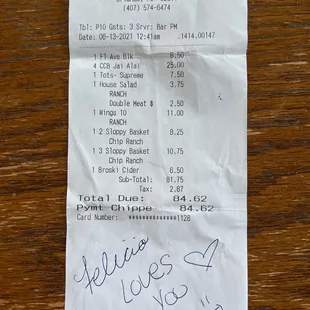 (407) 574-6474
Tbl: P10 Gsts: 3 Srvr: Bar PM
Date: 06-13-2021 12:41am .1414.00147
1 F1 Ave Blk 6.50
4 CCB Jai Alai 25.00
1 Tots- Supreme 7.50
1 House Salad 3.75
RANCH
Double Meat $ 2.50
1 Wings 10 11.00
RANCH
1 2 Sloppy Basket 8.25
Chip Ranch
1 3 Sloppy Basket 10.75
Chip Ranch
1 Broski Cider 6.50
Sub-Total: 81.75
Tax: 2.87
Total Due: 84.62
Pymt Chippe 84.62
Card Number: **************1126
Felicia
Loves
You